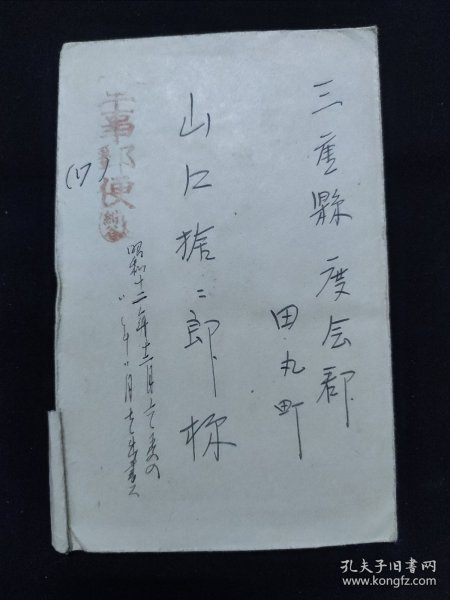 三重縣 度会郡
田丸町
山口捨二郎様
軍事郵便
(17)
昭和十二年十二月
孔夫子旧书网
www.kongfz.com